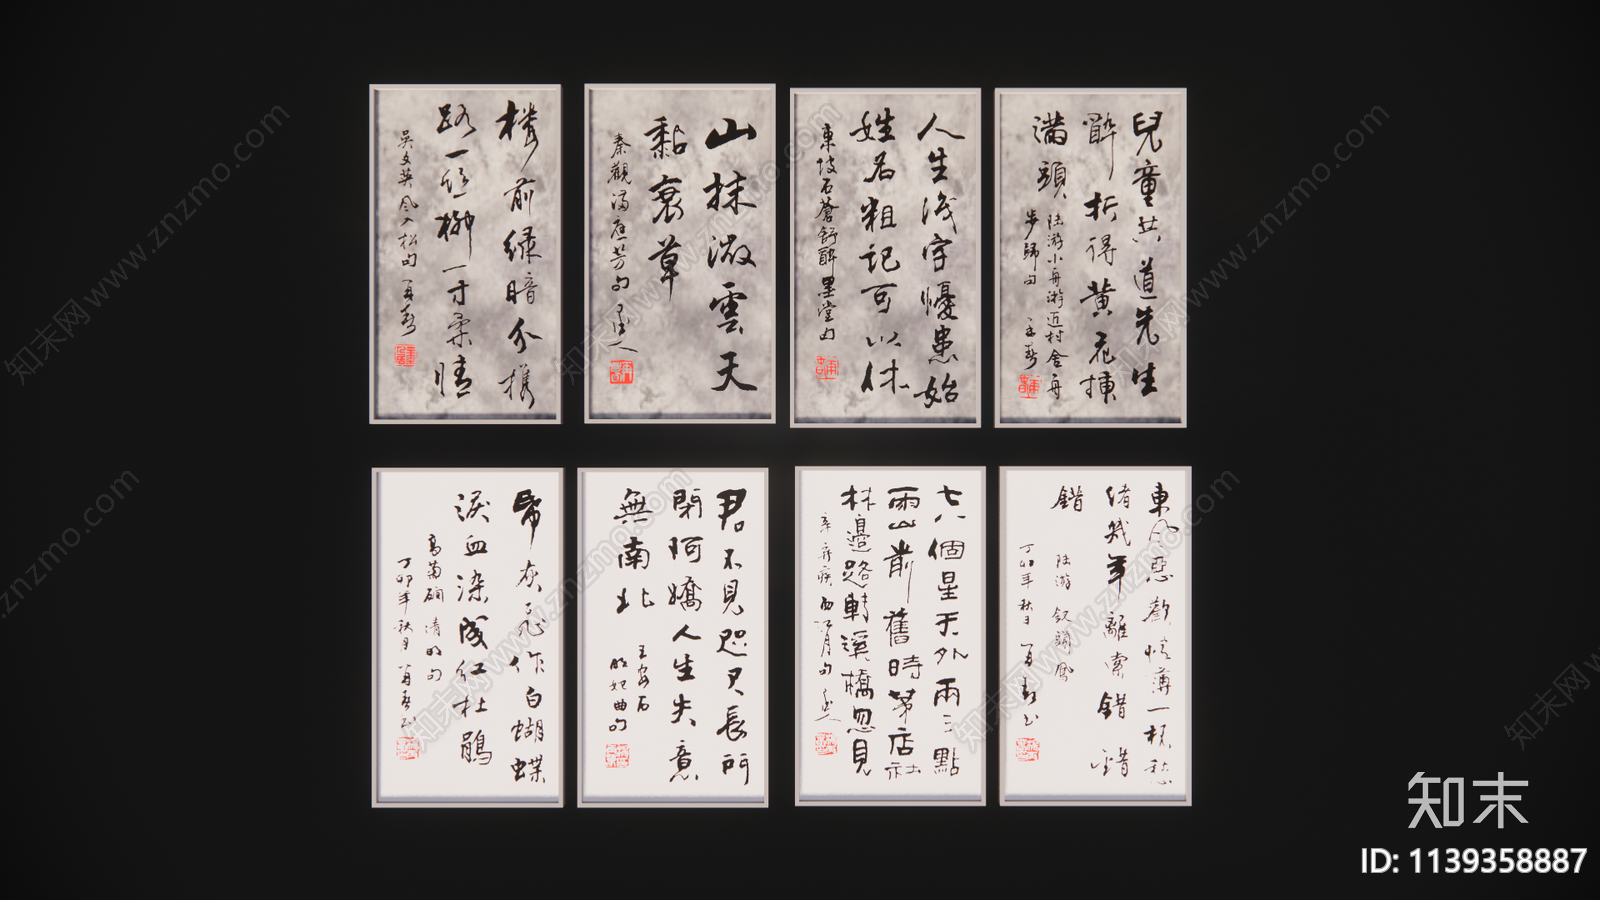 楼前绿暗分携
路一丝柳一寸柔情
吴文英风入松句
山抹微雲天
黏衰草
秦觀满庭芳句
人生识字憂患始
姓名粗记可以休
東坡石蒼舒醉墨堂句
兒童共道先生
醉折得黄花插
满頭
陆游小舟游近村舍舟
步归句
纸灰飞作白蝴蝶
淚血染成红杜鹃
高菊磵清明句
丁卯年秋月
君不見咫尺長門
閉阿嬌人生失意
無南北
王安石
明妃曲句
七八個星天外兩三點
雨山前舊時茅店社
林邊路轉溪橋忽見
辛弃疾西江月句
東风恶歡情薄一杯愁
绪幾年離索錯錯
錯
陆游钗頭鳳
丁卯年秋日
知末
ID: 1139358887
知末网www.znzmo.com